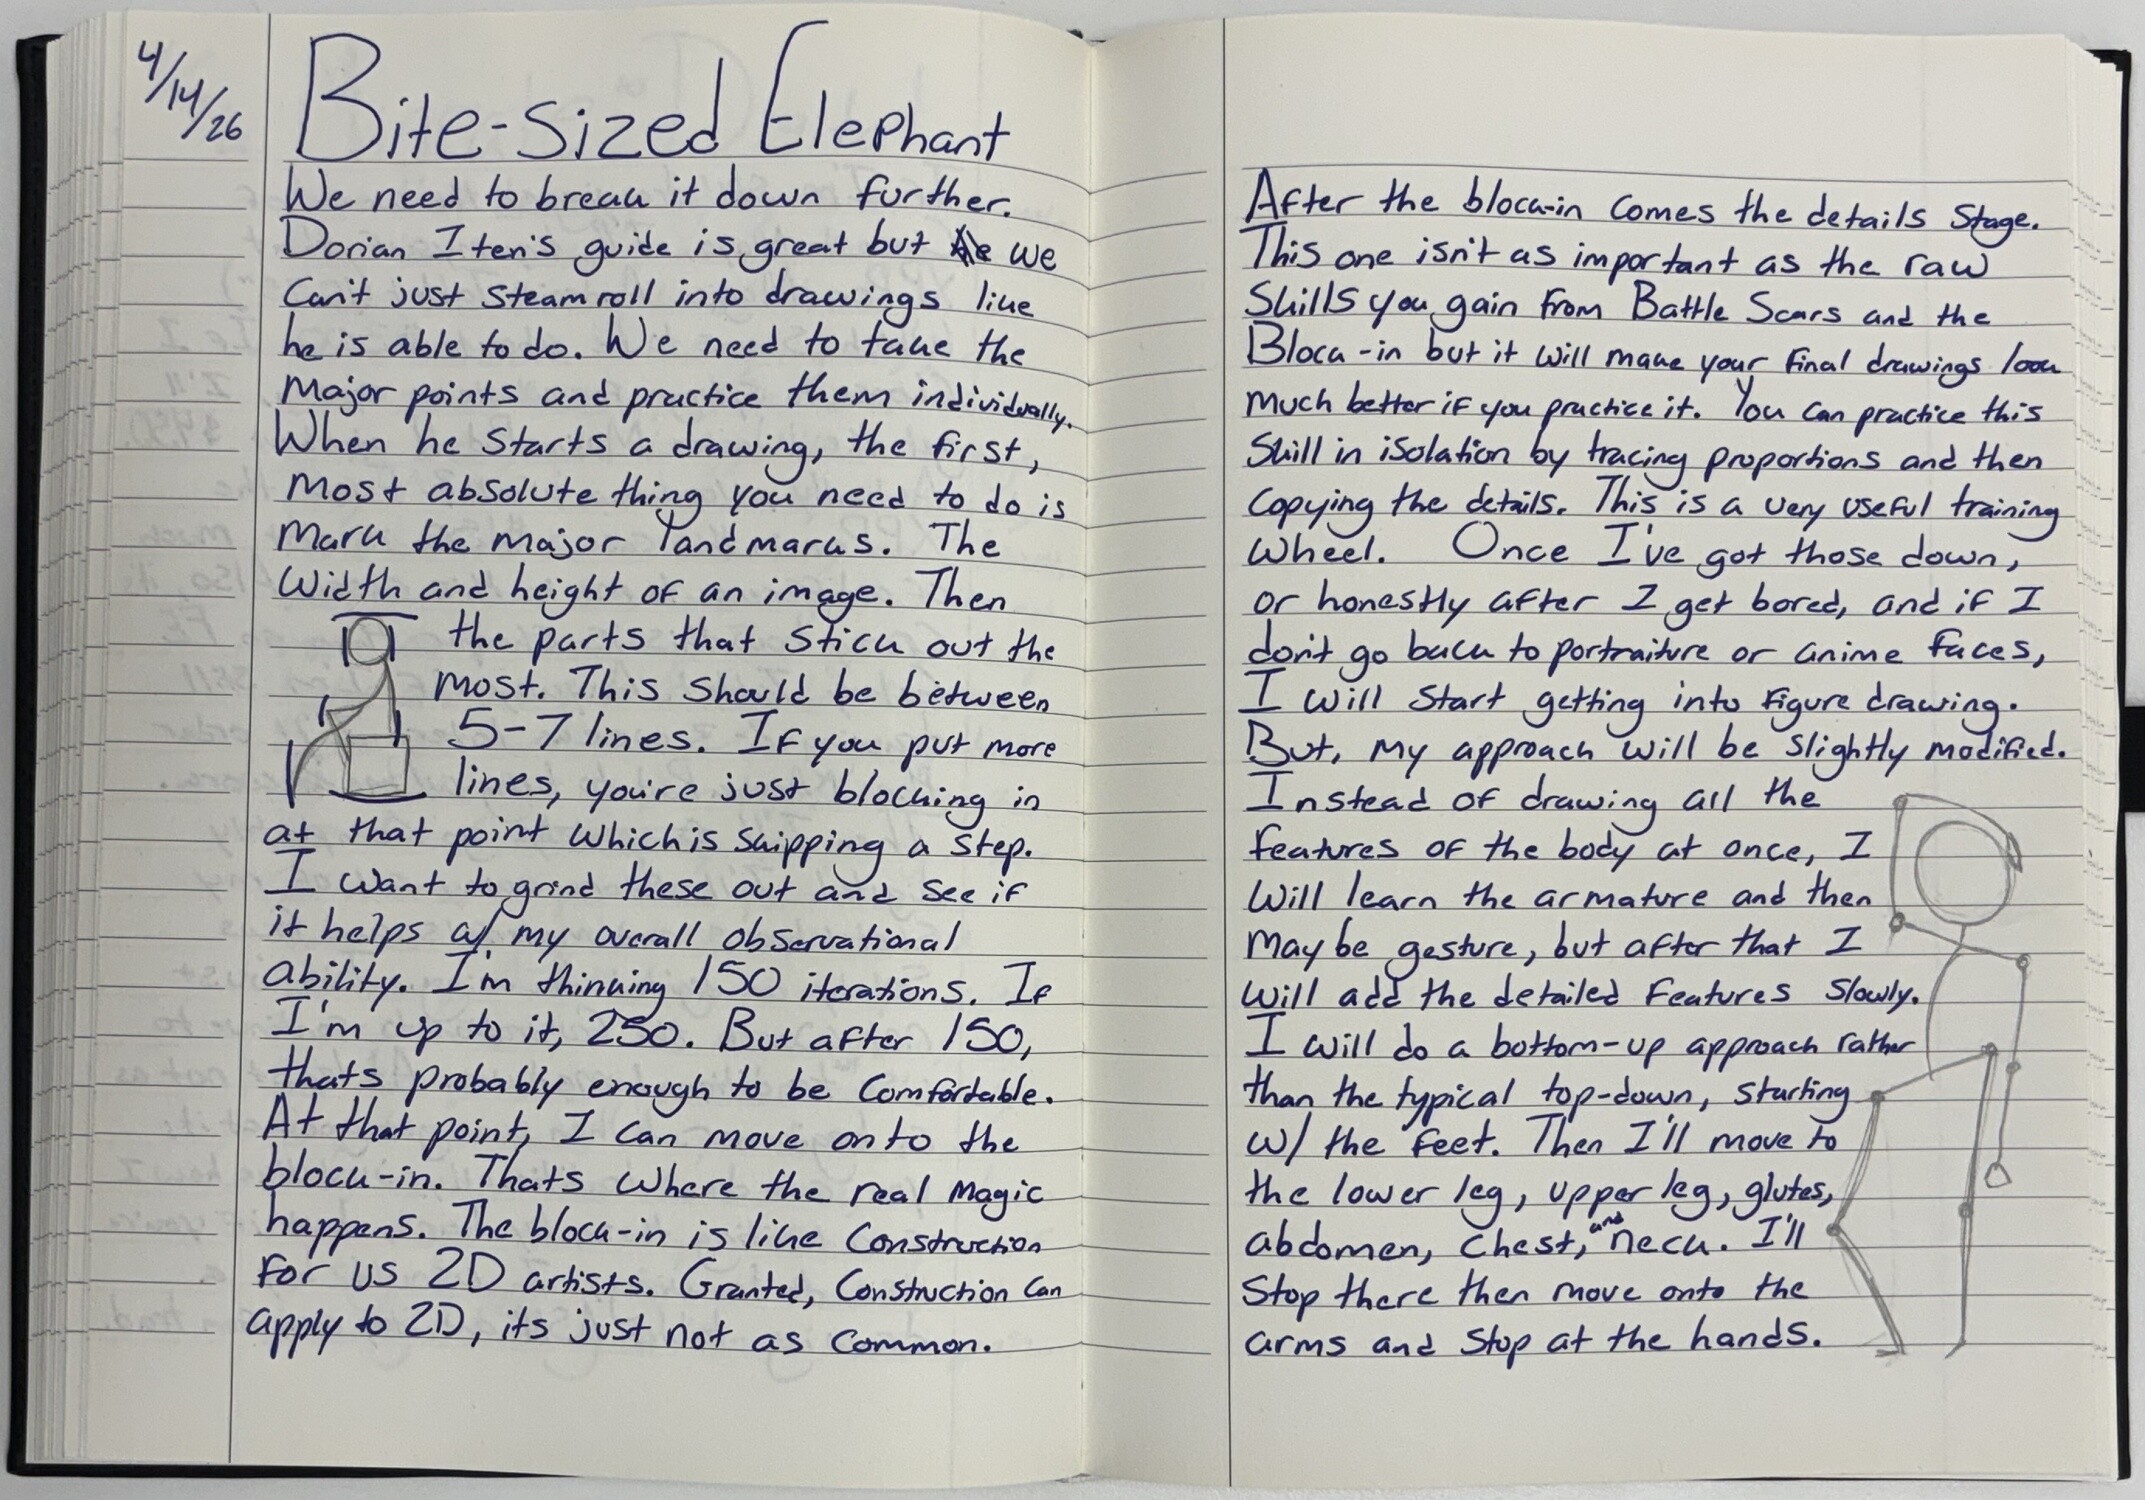 4/14/26
Bite-Sized Elephant
We need to break it down further.
Dorian Iten's guide is great but we
can't just steamroll into drawings like
he is able to do. We need to take the
major points and practice them individually.
When he starts a drawing, the first,
most absolute thing you need to do is
mark the major landmarks. The
width and height of an image. Then
the parts that stick out the
most. This should be between
5-7 lines. If you put more
lines, you're just blocking in
at that point which is skipping a step.
I want to grind these out and see if
it helps w/ my overall observational
ability. I'm thinking 150 iterations. If
I'm up to it, 250. But after 150,
thats probably enough to be comfortable.
At that point, I can move onto the
block-in. Thats where the real magic
happens. The block-in is like construction
for us 2D artists. Granted, construction can
apply to 2D, its just not as common.
After the block-in comes the details stage.
This one isn't as important as the raw
skills you gain from Battle Scars and the
Block-in but it will make your final drawings look
much better if you practice it. You can practice this
skill in isolation by tracing proportions and then
copying the details. This is a very useful training
wheel. Once I've got those down,
or honestly after I get bored, and if I
don't go back to portraiture or anime faces,
I will start getting into figure drawing.
But, my approach will be slightly modified.
Instead of drawing all the
features of the body at once, I
will learn the armature and then
maybe gesture, but after that I
will add the detailed features slowly.
I will do a bottom-up approach rather
than the typical top-down, starting
w/ the feet. Then I'll move to
the lower leg, upper leg, glutes,
abdomen, chest, and neck. I'll
stop there then move onto the
arms and stop at the hands.